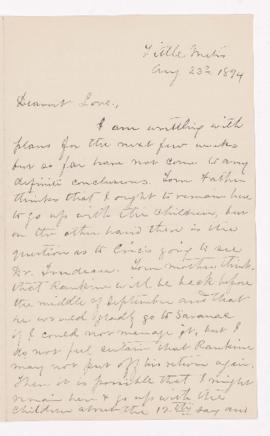 Little Metis
Aug 23rd 1894
Dearest Love,
I am wrestling with
plans for the next few weeks
but so far have not come to any
definite conclusions. Your Father
thinks that I ought to remain here
to go up with the children, but
on the other hand there is the
question as to going to see
Dr. Trudeau. Your mother thinks
that Rankine will be back before
the middle of September and that
he would gladly go to Saranac
if I could not manage it, but I
do not feel certain that Rankine
may not put off his return again.
Then it is possible that I might
remain here & go up with the
children about the 12th say and